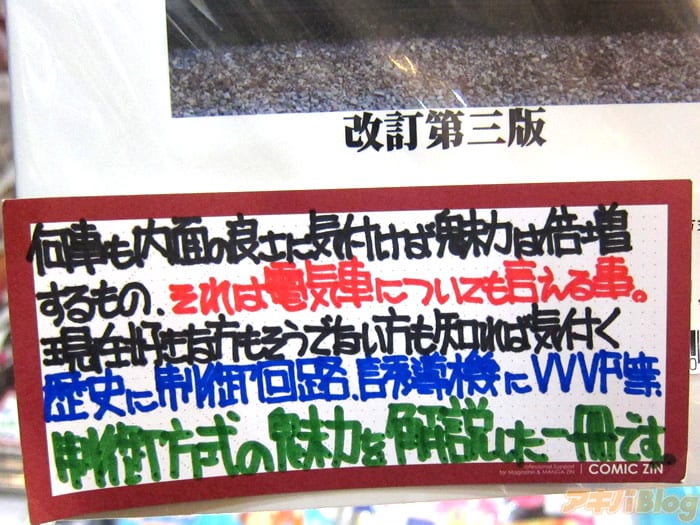 改訂第三版
何事も内面の良さに気付けば魅力は倍増
するもの、それは電気車についても言える事。
現在好きな方もそうでない方も知れば気付く
歴史に制御回路、誘導機にVVVF等
制御方式の魅力を解説した一冊です。
Professional Support
for Magazine & MANGA ZIN
COMIC ZIN
アキバBlog